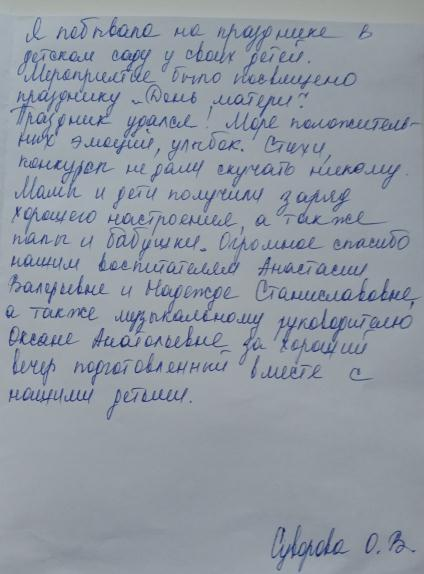 Я побывала на празднике в
детском саду у своих детей.
Мероприятие было посвящено
празднику „День матери".
Праздник удался! Море положитель-
ных эмоций, улыбок. Стихи,
конкурсы не дали скучать никому.
Мамы и дети получили заряд
хорошего настроения, а также
папы и бабушки. Огромное спасибо
нашим воспитателям Анастасии
Валерьевне и Надежде Станиславовне,
а также музыкальному руководителю
Оксане Анатольевне за хороший
вечер подготовленный вместе с
нашими детьми.
Суворова О. В.